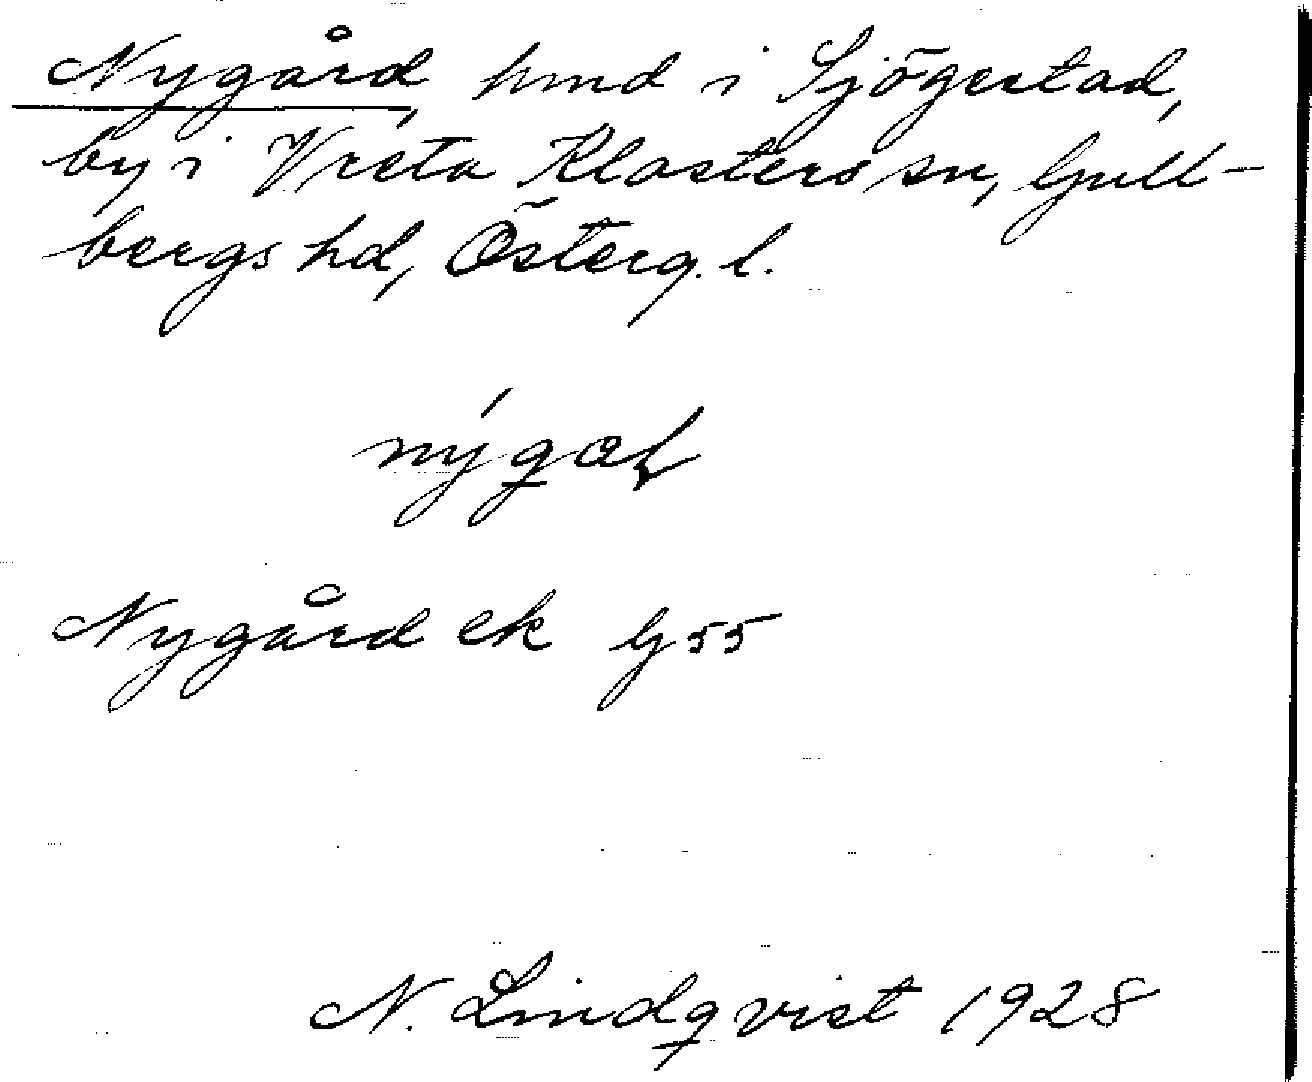 Nygård, hmd i Sjögestad,
by i Vreta Klosters sn, Gull-
bergs hd, Österg. l.
Nygård ek G 55
N. Lindqvist 1928